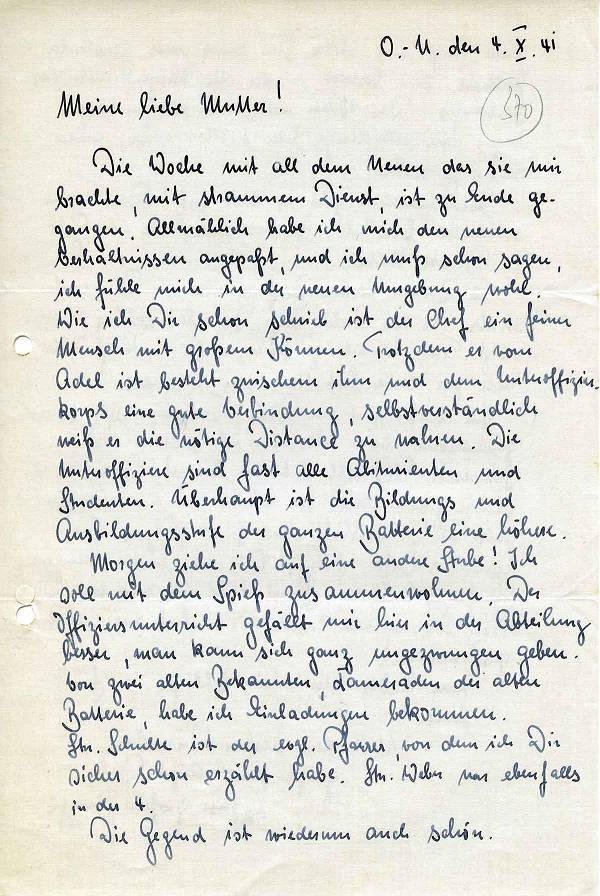 O.-U. den 4. X. 41
370
Meine liebe Mutter!
Die Woche mit all dem Neuen das sie mir
brachte, mit strammem Dienst, ist zu Ende ge-
gangen. Allmählich habe ich mich den neuen
Verhältnissen angepaßt, und ich muß schon sagen,
ich fühle mich in der neuen Umgebung wohl.
Wie ich Dir schon schrieb ist der Chef ein feiner
Mensch mit großem Können. Trotzdem er vom
Adel ist besteht zwischen ihm und dem Unteroffiziers-
korps eine gute Verbindung, selbstverständlich
weiß er die nötige Distance zu wahren. Die
Unteroffiziere sind fast alle Abiturienten und
Studenten. Überhaupt ist die Bildungs und
Ausbildungsstufe der ganzen Batterie eine höhere.
Morgen ziehe ich auf eine andere Stube! Ich
soll mit dem Spieß zusammenwohnen. Der
Offiziersunterricht gefällt mir hier in der Abteilung
besser, man kann sich ganz ungezwungen geben.
Von zwei alten Bekannten, Kameraden der alten
Batterie, habe ich Einladungen bekommen.
Ltn. Schulte ist der evgl. Pfarrer, von dem ich Dir
sicher schon erzählt habe. Ltn. Weber war ebenfalls
in der 4.
Die Gegend ist wiederum auch schön.